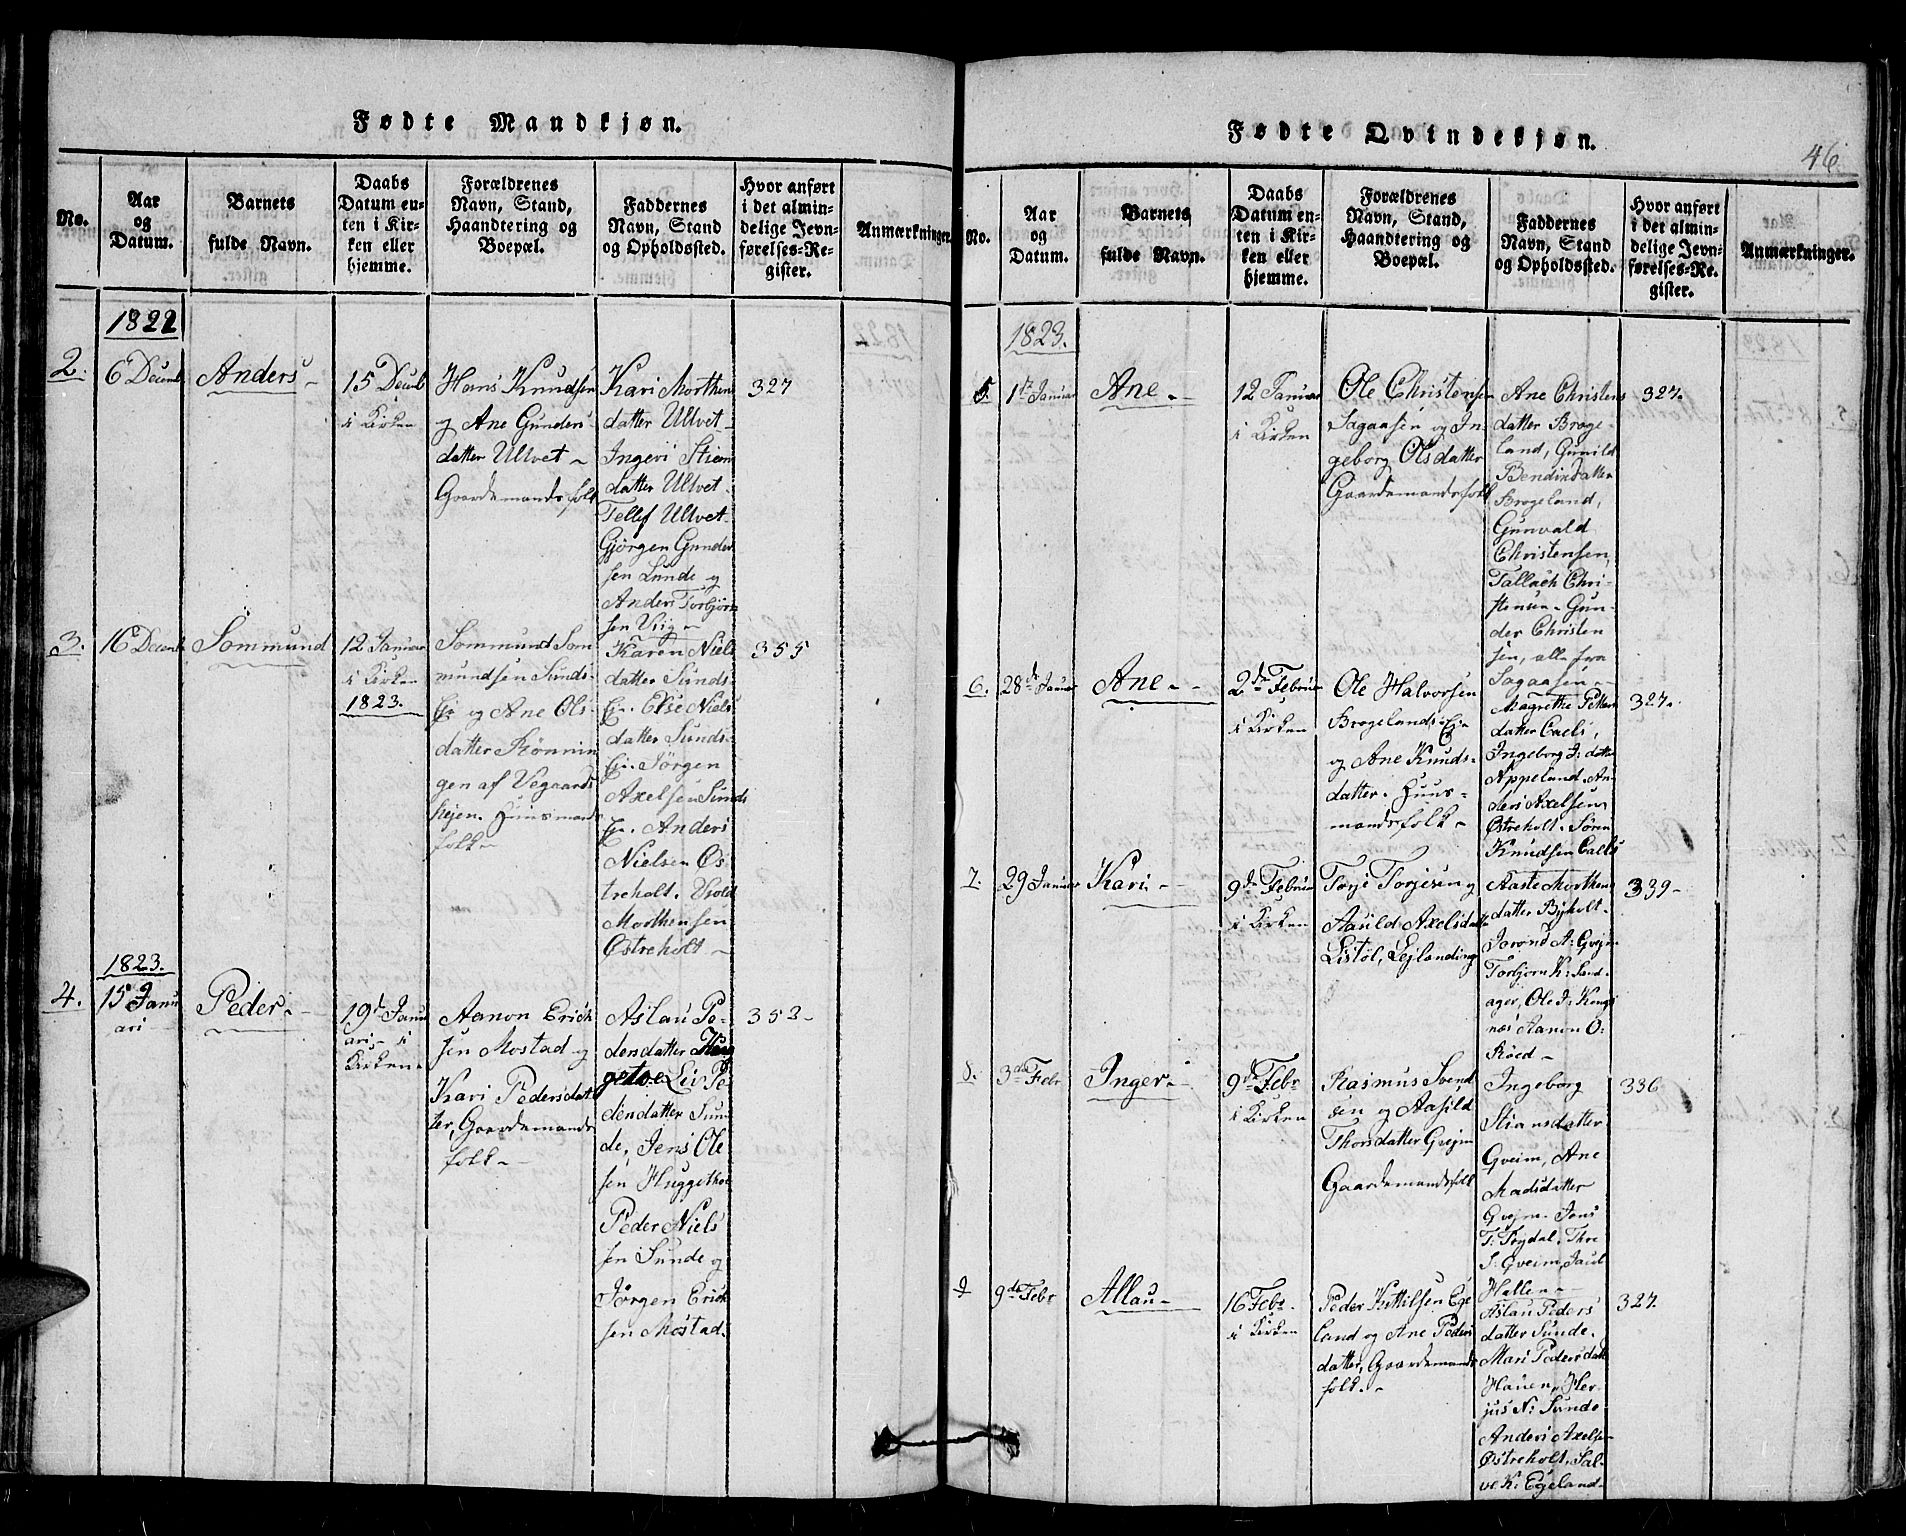 Fødte Mandkjøn.
No.
Aar
og
Datum.
Barnets
fulde Navn.
Daabs
Datum en-
ten i Kir-
ken eller
hjemme.
Forældrenes
Navn, Stand,
Haandtering og
Boepæl.
Faddernes
Navn, Stand
og Opholdssted.
Hvor anført
i det almin-
delige Jevn-
førelses-Re-
gister.
Anmærkninger.
1822
2.
6 Decemb
Anders
15 Decemb
i Kirken
Hans Knudsen
og Ane Gunders
datter Ulvet
Gaardemandsfolk
Kari Morthens
datter Ulvet
Ingeri Stians
datter Ulvet
Tellef Ulvet
Gjörgen Gunder
sen Lunde og
Anders Torbjörn
sen Viig
327
3.
16 Decemb
Sommund
12 Januar
i Kirken
1823.
Sommund Som
mundsen Sunds
Ej og Ane Ols
datter Rönnin
gen af Vegaards
hejen. Huusmands
folk
Karen Niels
datter Sunds
Ej. Else Niels
datter Sunds
Ej. Jörgen
Axelsen Sunds
Ej. Anders
Nielsen Øs
treholt.
Morthensen
Østreholt
355
1823.
4.
15 Janu
ari
Peder
19d Janu
ari i
Kirken
Aanon Erich
sen Mostad og
Kari Pedersdat
ter, Gaardemands
folk
Aslau Pe-
dersdatter Hug
getoe Liv Pe
dersdatter Sun
de, Jens Ole
sen Huggethoe
Peder Niels
sen Sunde og
Jörgen Erich
sen Mostad.
353
Fødte Qvindekjøn.
46
No.
Aar
og
Datum.
Barnets
fulde Navn.
Daabs
Datum en-
ten i Kir-
ken eller
hjemme.
Forældrenes
Navn, Stand,
Haandtering og
Boepæl.
Faddernes
Navn, Stand
og Opholdssted.
Hvor anført
i det almin-
delige Jevn-
førelses-Re-
gister.
Anmærkninger.
1823.
5.
1ste Januar
Ane
12 Januar
i Kirken
Ole Christensen
Sagaasen og In
geborg Olsdatter
Gaardemandsfolk
Ane Christens
datter Brøge-
land, Gunild
Bendixdatter
Brøgeland,
Gunvald
Christensen,
Tallach Chri-
stensen. Gun-
der Christen
sen, alle fra
Sagaasen
327.
6.
28de Januar
Ane
2de Februar
i Kirken
Ole Halvorsen
Brøgelands Ej
og Ane Knuds-
datter. Huus-
mandsfolk
Magrethe Peders
datter Caels,
Ingeborg J: datter
Appeland. An-
ders Axelsen
Østreholt. Sören
Knudsen Caels
327.
7.
29 Januar
Kari
9de Februar
i Kirken
Torje Torjesen og
Aauld Axelsdatter
Listöl, Lejlænding
Aaste Morthens
datter Byholt.
Jorond A: Gvejm
Torbjörn K: Sand-
ager, Ole J: Kongs
næs Aanon O:
Röed
339
8.
3de Febr
Inger
9de Febr
i Kirken
Rasmus Svend
sen og Aasild
Thorsdatter Gvejm
Gaardemandsfolk
Ingeborg
Stiansdatter
Gveim, Ane
Madsdatter
Gvejm. Jens
T: Trydal. Thore
S: Gveim,
Hallen
336
9
9de Febr
Allau
16 Febr.
i Kirken
Peder Kittilsen Ege
land og Ane Peders
datter, Gaardemands
folk.
Aslau Peders
datter Sunde.
Mari Peders datt
Hauen, Her-
jus N: Sunde
Anders Axelsen
Østreholt. Sal-
ve K: Egeland
327.